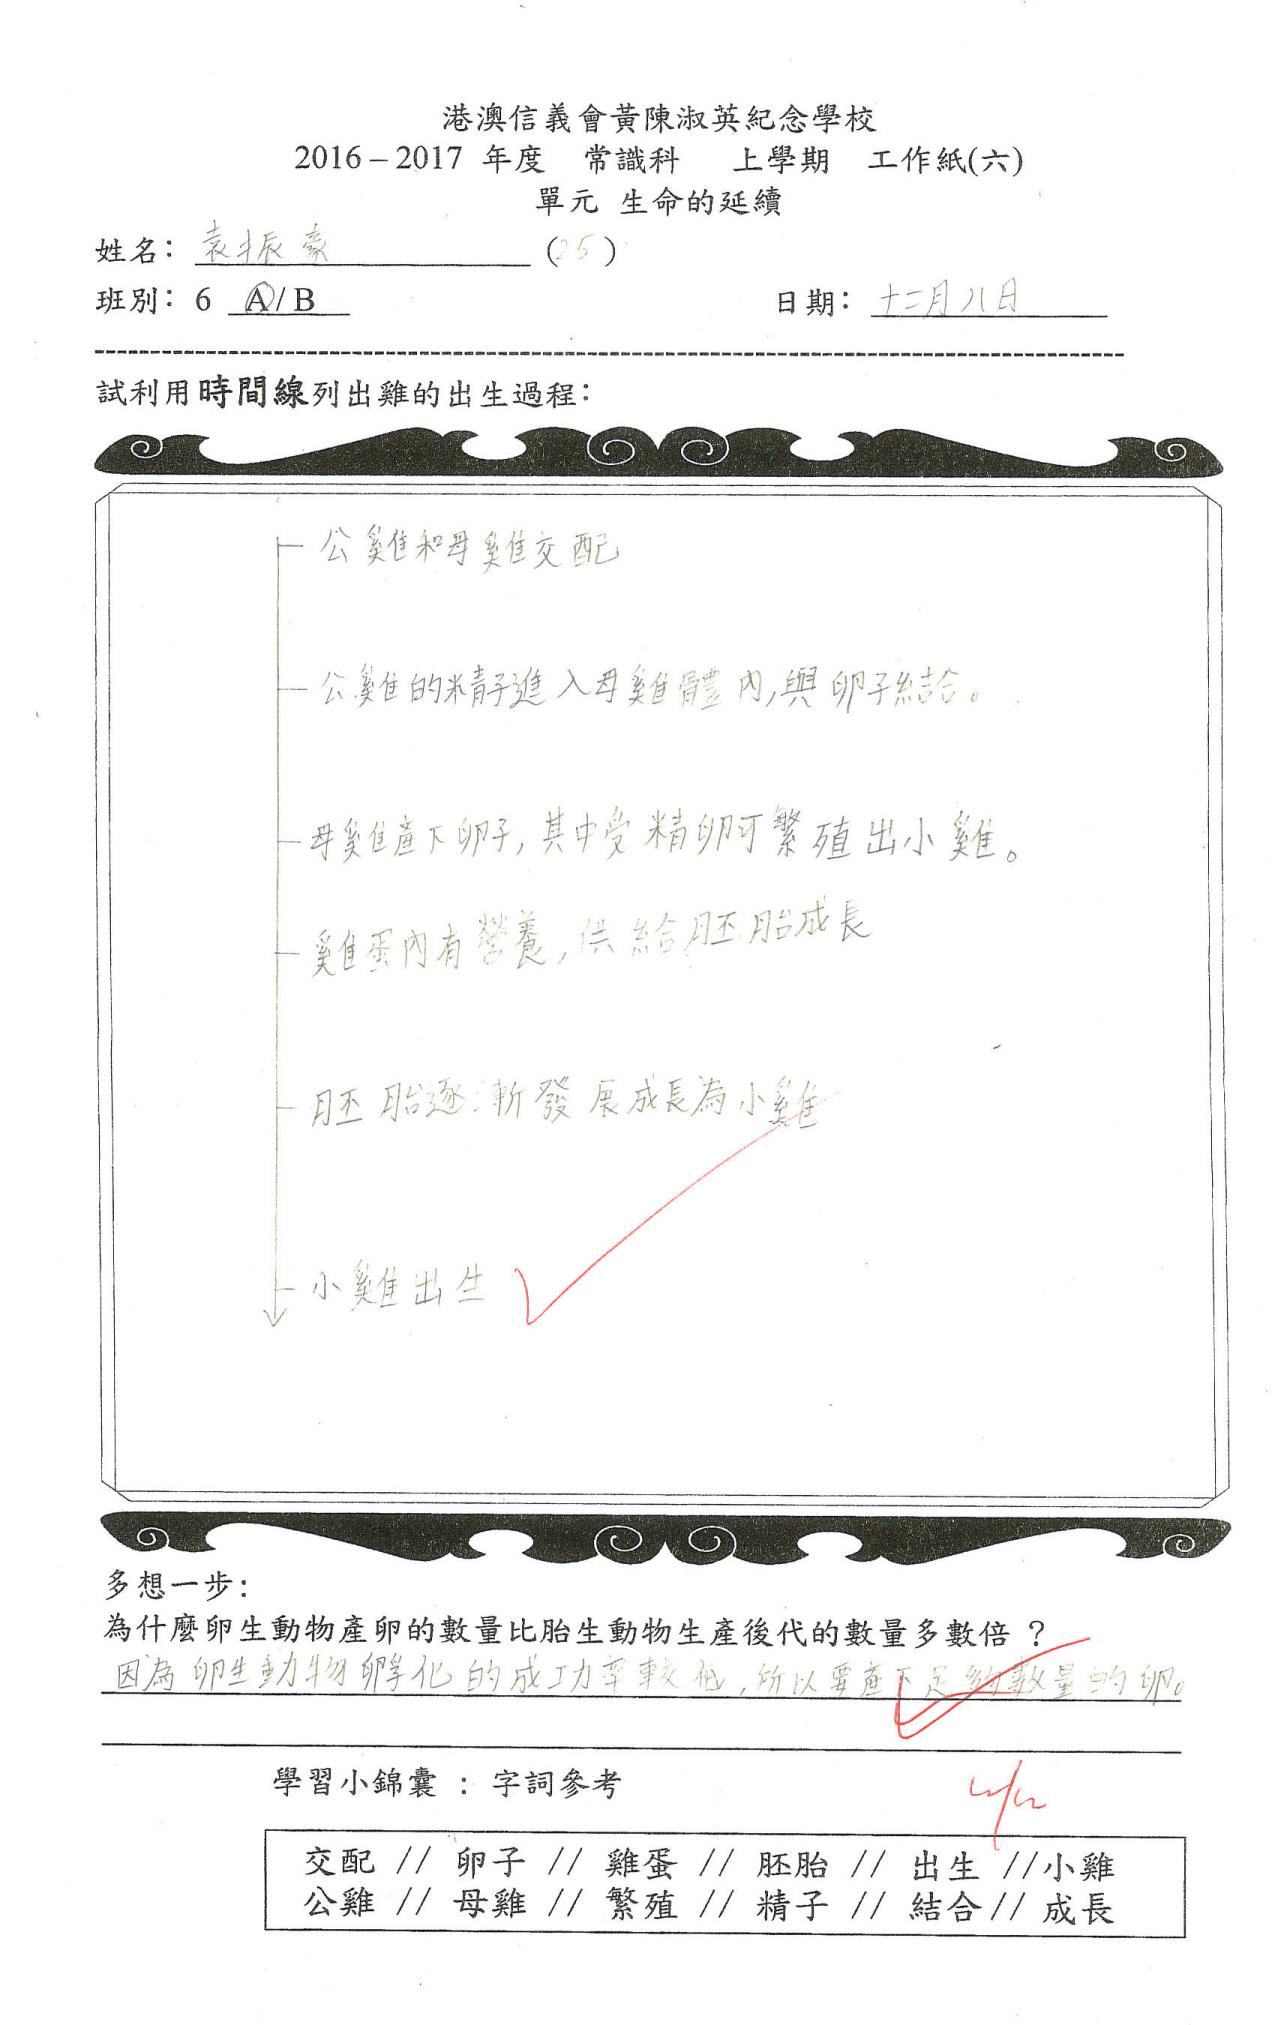 港澳信義會黃陳淑英紀念學校
2016 – 2017 年度 常識科 上學期 工作紙(六)
單元 生命的延續
姓名： 袁振豪 (25)
班別： 6 A / B 日期： 十二月八日
試利用時間線列出雞的出生過程：
公雞和母雞交配
公雞的精子進入母雞體內,與卵子結合。
母雞產下卵子,其中受精卵可繁殖出小雞。
雞蛋內有營養,供給胚胎成長
胚胎逐漸發展成長為小雞
小雞出生
多想一步：
為什麼卵生動物產卵的數量比胎生動物生產後代的數量多數倍？
因為卵生動物孵化的成功率較低,所以要產下足夠數量的卵。
學習小錦囊 ： 字詞參考
交配 // 卵子 // 雞蛋 // 胚胎 // 出生 //小雞
公雞 // 母雞 // 繁殖 // 精子 // 結合// 成長